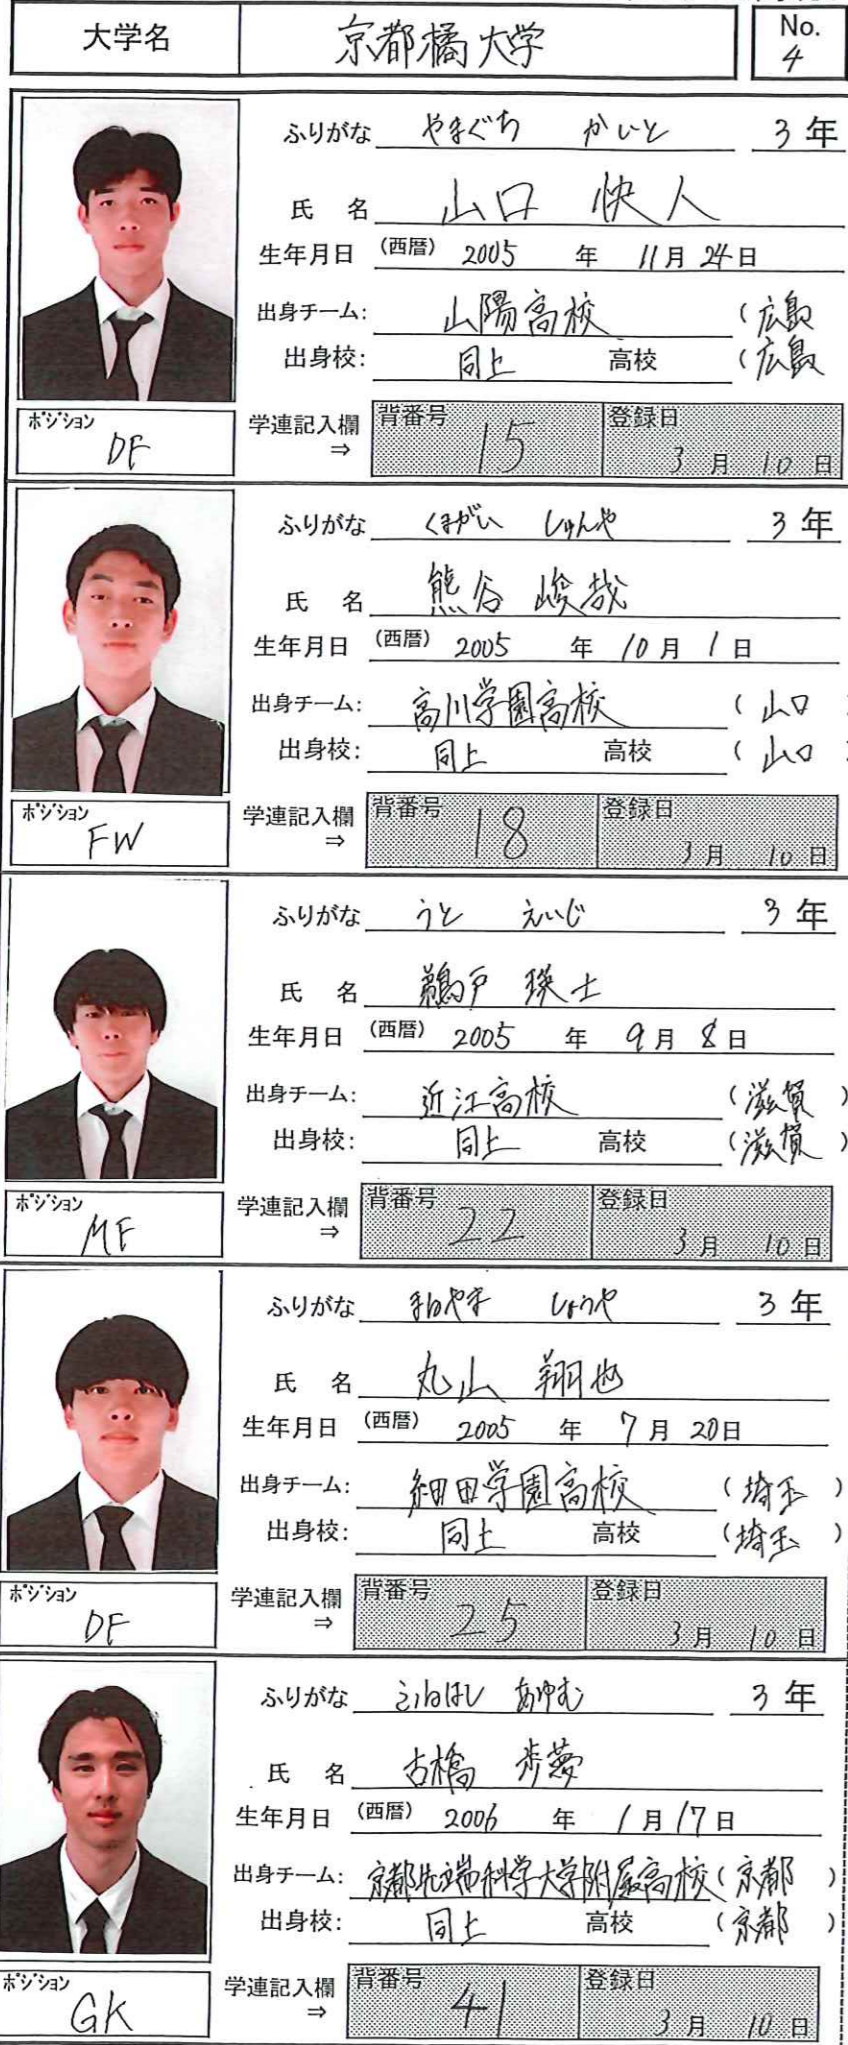 大学名 京都橘大学 No. 4
ふりがな やまぐち かいと 3年
氏名 山口 快人
生年月日 (西暦) 2005年 11月24日
出身チーム: 山陽高校 (広島
出身校: 同上 高校 (広島
ポジション DF 学連記入欄⇒ 背番号 15 登録日 3月10日
ふりがな くまがい しゅんや 3年
氏名 熊谷 峻哉
生年月日 (西暦) 2005年 10月1日
出身チーム: 高川学園高校 (山口
出身校: 同上 高校 (山口
ポジション FW 学連記入欄⇒ 背番号 18 登録日 3月10日
ふりがな うと えいじ 3年
氏名 鵜戸 瑛士
生年月日 (西暦) 2005年 9月8日
出身チーム: 近江高校 (滋賀)
出身校: 同上 高校 (滋賀)
ポジション MF 学連記入欄⇒ 背番号 22 登録日 3月10日
ふりがな まるやま しょうや 3年
氏名 丸山 翔也
生年月日 (西暦) 2005年 7月20日
出身チーム: 細田学園高校 (埼玉)
出身校: 同上 高校 (埼玉)
ポジション DF 学連記入欄⇒ 背番号 25 登録日 3月10日
ふりがな ふるはし あゆむ 3年
氏名 古橋 歩夢
生年月日 (西暦) 2006年 1月17日
出身チーム: 京都先端科学大学附属高校 (京都)
出身校: 同上 高校 (京都)
ポジション GK 学連記入欄⇒ 背番号 41 登録日 3月10日